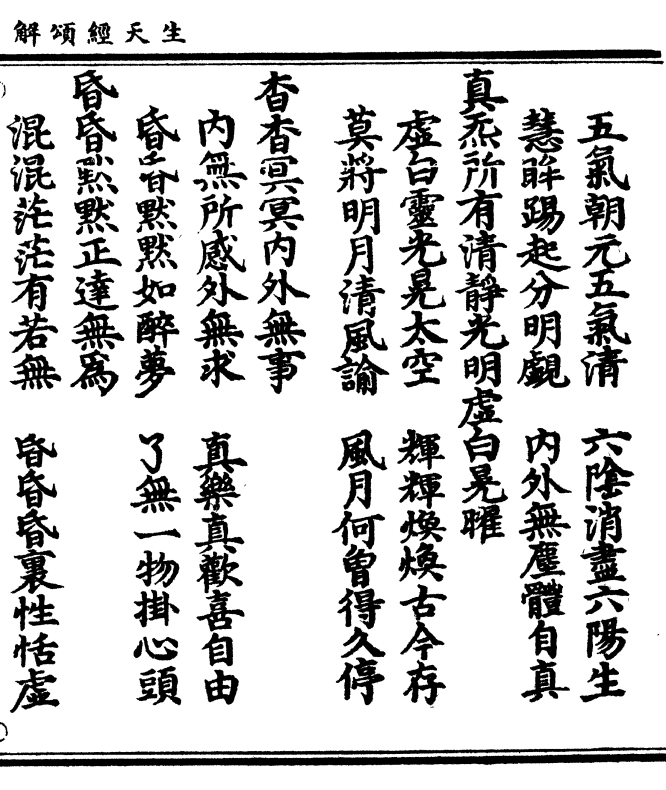 生天經頌解
五氣朝元五氣清　六陰消盡六陽生
慧眸踢起分明覷　內外無塵體自真
真炁所有清靜光明虛白晃曜
虛白靈光晃太空　輝輝煥煥古今存
莫將明月清風諭　風月何曾得久停
杳杳冥冥內外無事
內無所感外無求　真樂真歡喜自由
昏昏默默如醉夢　了無一物掛心頭
昏昏默默正達無爲
混混茫茫有若無　昏昏昏裏性恬虛